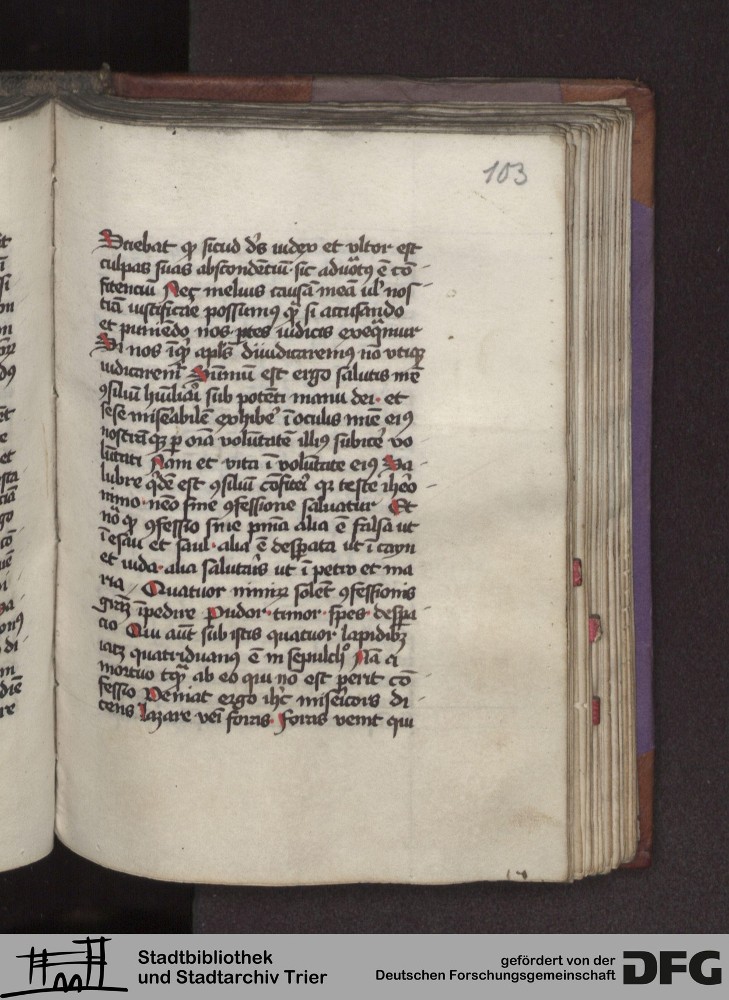 103
Sciebat qͥ sicud dūs iudex et vltor est
culpas suas abscondentiū· sic aduōtꝰ ē cō
fitenciū Nec melius causam meā ul' nos
tiā iustificare possumꝰ qͣ si accusando
et puniēdo nos ptes iudicis exeqͣmur
Si nos īqͥ apls diiudicaremꝰ nō vtiqꝫ
iudicarem̄ Summū est ergo salutis me
ꝯsiliū hūiliari sub potēti manu dei· et
sese miserabilē exhibe' ī oculis mie eiꝰ
nostrāqꝫ p oīa voluntatē illiꝰ subice' vo
lūtati Nam et vita ī volūtate eiꝰ Sa
lubre qͥdē est ꝯsiliū cōfite'i qꝛ teste ihero
nimo· nēo sine ꝯfessione saluatur Et
nō qͥ ꝯfessio sine pnīa alia ē falsa ut
ī esau et saul· alia ē despata ut ī cayn
et iuda· alia salutaris ut ī petro et ma
ria Quatuor nimiꝝ solēt ꝯfessionis
grām īpedire Pudor· timor· spes· despa
cio Qui aūt sub istis quatuor lapidibꝫ
iacꝫ quatriduanꝰ ē in sepulchͦ Nā a
mortuo tqͣ ab eo qui nō est perit cō
fessio Veniat ergo ihc misericors di
cens lazare veī foras· foras venit qui
Stadtbibliothek
und Stadtarchiv Trier
gefördert von der
Deutschen Forschungsgemeinschaft
DFG